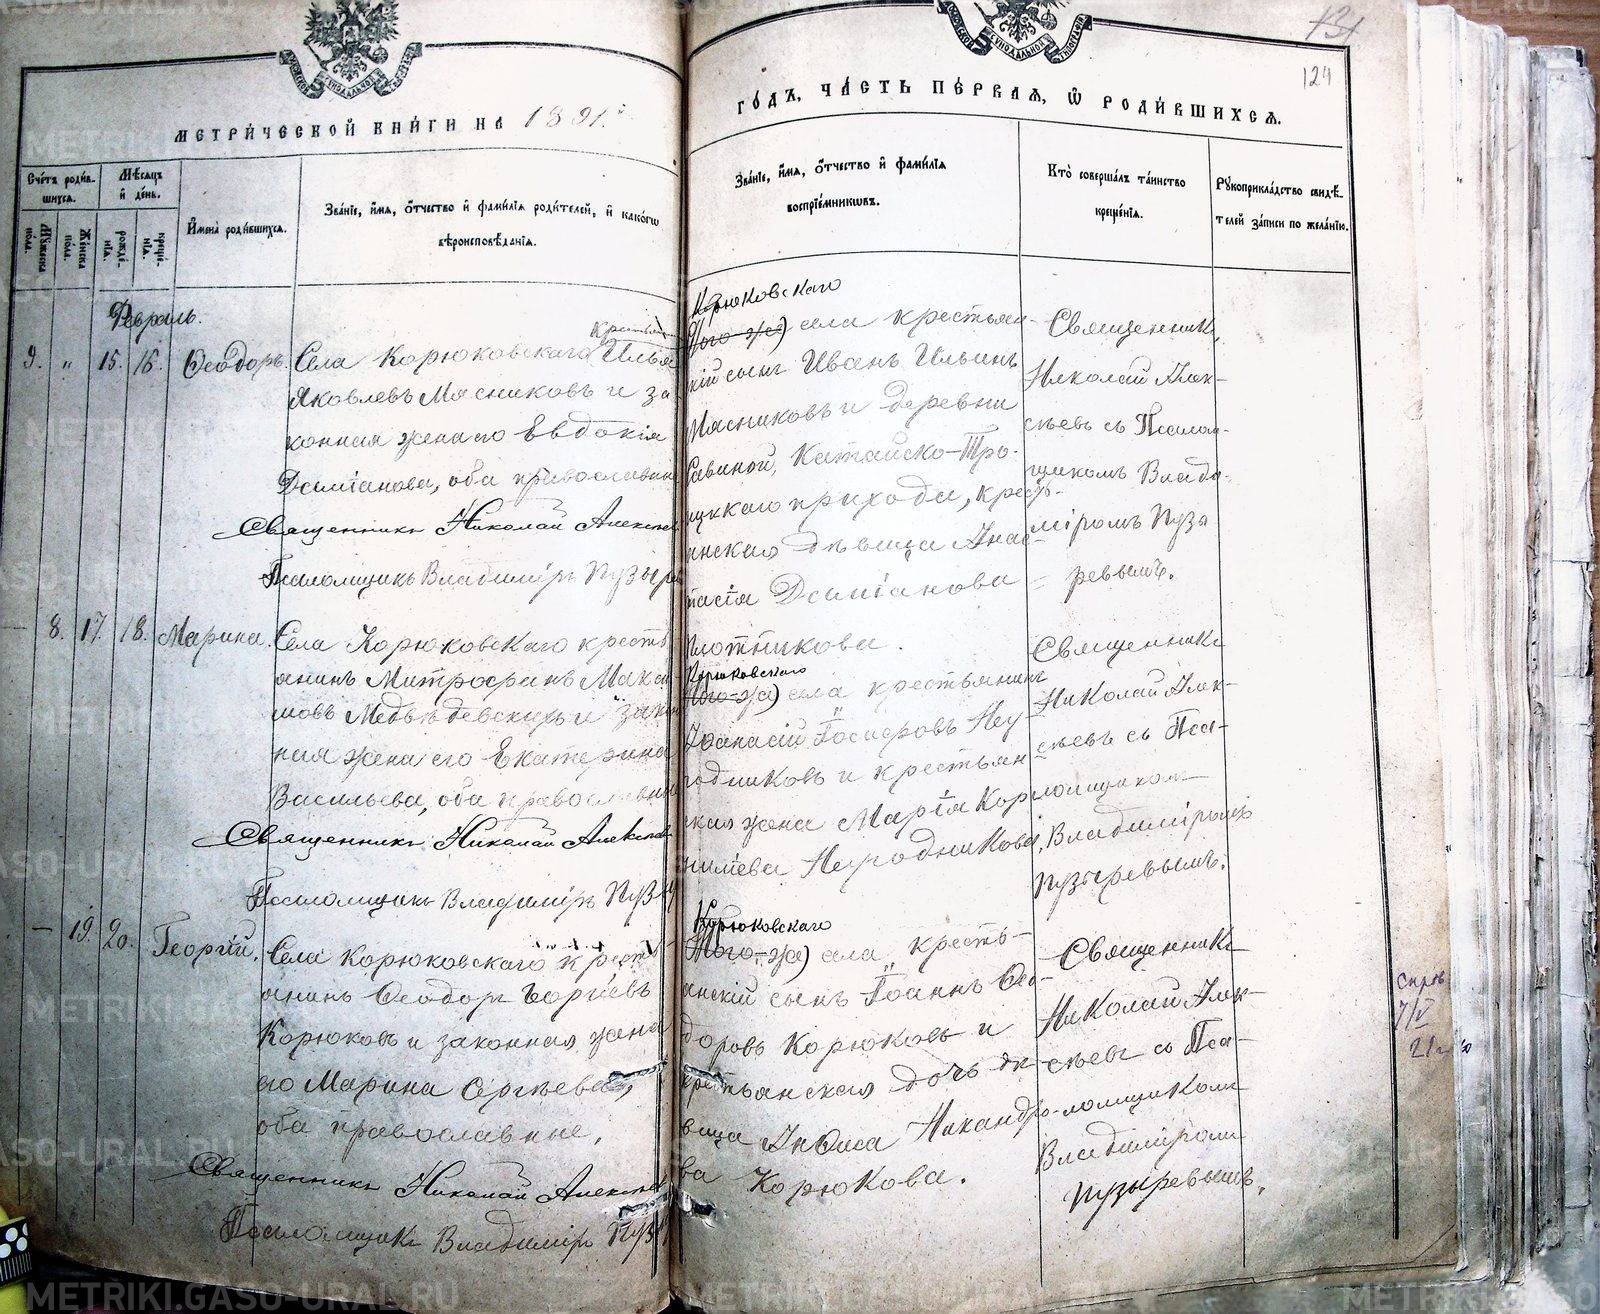 МЕТРИ́ЧЕСКОЙ КНИ́ГИ НА 1891.й
ГО́ДЪ, ЧА́СТЬ ПЕ́РВАЯ, Ѡ҆ РОДИ́ВШИХСЯ.
124
Сче́тъ роди́в-
шихся.
Мѣ́сяцъ
и҆ де́нь.
Му́жеска
по́ла.
Же́нска
по́ла.
рожде́-
нїя.
креще́-
нїя.
И҆мена̀ роди́вшихся.
Зва́нїе, и҆́мя, ѻ҆́тчество и҆ фами́лїя роди́телей, и҆ како́гѡ
вѣроисповѣ́данїя.
Зва́нїе, и҆́мя, ѻ҆́тчество и҆ фами́лїя
воспрїе́мникѡвъ.
Кто̀ соверша́лъ та́инство
креще́нїя.
Рꙋкоприкла́дство свидѣ́-
телей за́писи по жела́нїю.
Февраль.
9. " 15. 16. Ѳеодоръ.
Села Корюковскаго Илья
Яковлевъ Мясниковъ и за-
конная жена его Евдокія
Даміанова, оба православные
Священникъ Николай Алексѣев
Псаломщикъ Владиміръ Пузырев
Корюковскаго
(Того-же) села крестьян-
скій сынъ Иванъ Ильинъ
Мясниковъ и деревни
Савиной, Катайско-Тро-
ицкаго прихода, кресть-
янская дѣвица Анас-
тасія Даміанова
Плотникова.
Священникъ
Николай Алек-
сѣевъ съ Псалом-
щикомъ Влади-
міромъ Пузы-
ревымъ.
8. 17. 18. Марина.
Села Корюковскаго кресть
янинъ Митрофанъ Макси
мовъ Медвѣдевскихъ и закон
ная жена его Екатерина
Васильева, оба православны
Священникъ Николай Алексѣев
Псаломщикъ Владиміръ Пузы
Корюковскаго
(Того-же) села крестьянинъ
Аѳанасій Іосифовъ Неу-
родниковъ и крестьян-
ская жена Марія Кор
ниліева Неуродникова.
Священникъ
Николай Алек-
сѣевъ съ Пса-
ломщикомъ
Владиміромъ
Пузыревымъ.
— 19. 20. Георгій.
Села Корюковскаго кресть
янинъ Ѳеодоръ Георгіевъ
Корюковъ и законная жена
его Марина Сергѣева,
оба православные.
Священникъ Николай Алексѣев
Псаломщикъ Владиміръ Пузы
Корюковскаго
(Того-же) села кресть-
янскій сынъ Іоаннъ Ѳео-
доровъ Корюковъ и
крестьянская дочь дѣ-
вица Анѳиса Никандро-
ва Корюкова.
Священникъ
Николай Алек-
сѣевъ съ Пса-
ломщикомъ
Владиміромъ
Пузыревымъ.
7/V
METRIKI.GASO-URAL.RU
METRIKI.GASO-URAL.RU